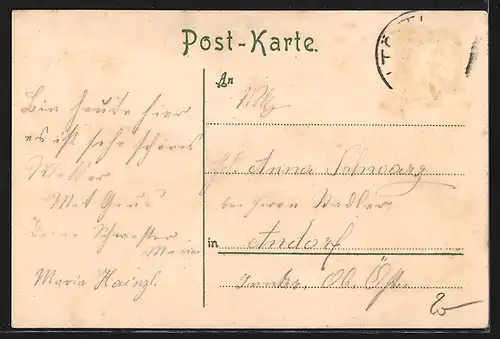 Post-Karte.
An
Bin heute hier
es ist sehr schönes
Wetter
Mit Gruss
Deine Schwester
Marie
Maria Hainzl
Frl. Anna Schwarz
bei Herrn Stadler
in Andorf
Ob. Öst.